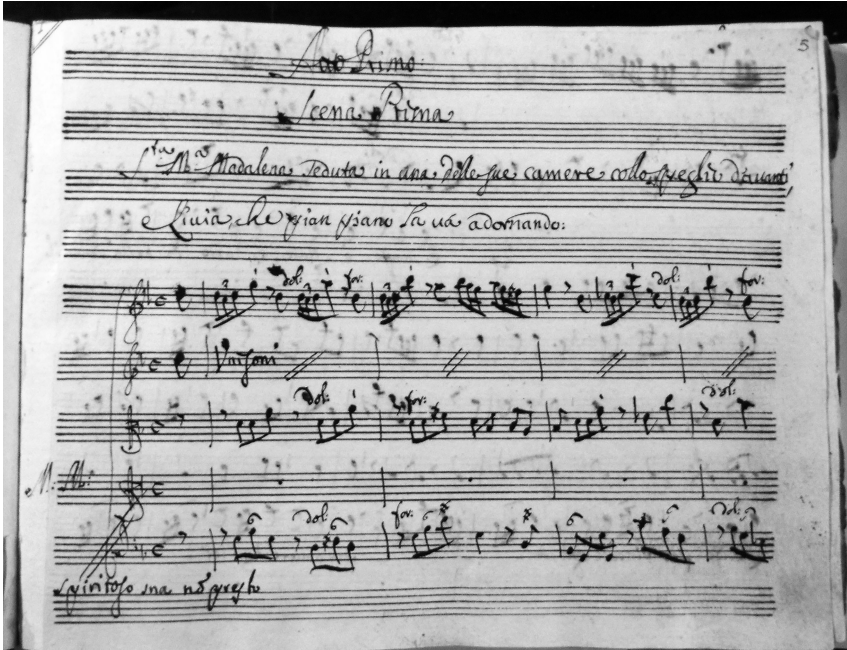 5
Atto Primo.
Scena Prima
Sra. Ma. Madalena seduta in una delle sue camere collo speglio davanti,
e Livia che pian piano la và adornando:
dol: for: dol: for:
Unisoni
dol: for: dol:
M: M:
6 dol: 6 for: 6 6 6 dol:
spiritoso ma nõ presto